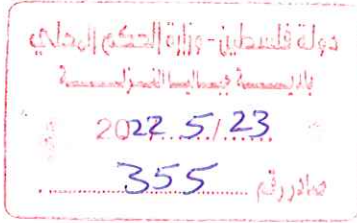 دولة فلسطين - وزارة الحكم المحلي
بلديـــة
2022/5/23
صادر رقم 355